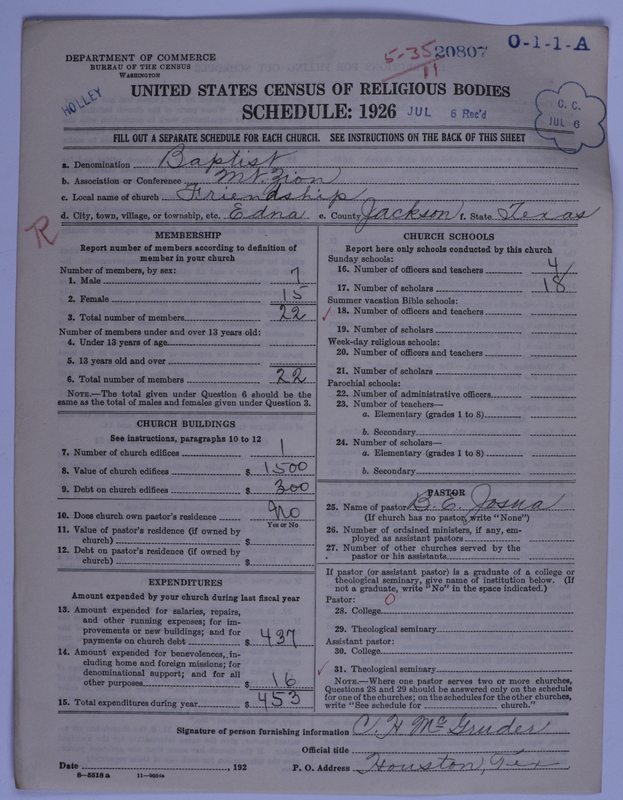 DEPARTMENT OF COMMERCE
BUREAU OF THE CENSUS
WASHINGTON
HOLLEY
5-35 20807 O-1-1-A
11
UNITED STATES CENSUS OF RELIGIOUS BODIES
SCHEDULE: 1926 JUL 6 Rec'd
C. C.
JUL 6
FILL OUT A SEPARATE SCHEDULE FOR EACH CHURCH. SEE INSTRUCTIONS ON THE BACK OF THIS SHEET
a. Denomination Baptist
b. Association or Conference Mt. Zion
c. Local name of church Friendship
d. City, town, village, or township, etc. Edna e. County Jackson f. State Texas
R
MEMBERSHIP
Report number of members according to definition of
member in your church
Number of members, by sex:
1. Male 7
2. Female 15
3. Total number of members 22
Number of members under and over 13 years old:
4. Under 13 years of age
5. 13 years old and over
6. Total number of members 22
NOTE.—The total given under Question 6 should be the
same as the total of males and females given under Question 3.
CHURCH BUILDINGS
See instructions, paragraphs 10 to 12
7. Number of church edifices 1
8. Value of church edifices $ 1500
9. Debt on church edifices $ 300
10. Does church own pastor's residence No
Yes or No
11. Value of pastor's residence (if owned by
church) $
12. Debt on pastor's residence (if owned by
church) $
EXPENDITURES
Amount expended by your church during last fiscal year
13. Amount expended for salaries, repairs,
and other running expenses; for im-
provements or new buildings; and for
payments on church debt $ 437
14. Amount expended for benevolences, in-
cluding home and foreign missions; for
denominational support; and for all
other purposes $ 16
15. Total expenditures during year $ 453
CHURCH SCHOOLS
Report here only schools conducted by this church
Sunday schools:
16. Number of officers and teachers 4
17. Number of scholars 18
Summer vacation Bible schools:
18. Number of officers and teachers
19. Number of scholars
Week-day religious schools:
20. Number of officers and teachers
21. Number of scholars
Parochial schools:
22. Number of administrative officers
23. Number of teachers—
a. Elementary (grades 1 to 8)
b. Secondary
24. Number of scholars—
a. Elementary (grades 1 to 8)
b. Secondary
PASTOR
25. Name of pastor B. E. Josua
(If church has no pastor, write "None")
26. Number of ordained ministers, if any, em-
ployed as assistant pastors
27. Number of other churches served by the
pastor or his assistants
If pastor (or assistant pastor) is a graduate of a college or
theological seminary, give name of institution below. (If
not a graduate, write "No" in the space indicated.)
Pastor: O
28. College
29. Theological seminary
Assistant pastor:
30. College
31. Theological seminary
NOTE.—Where one pastor serves two or more churches,
Questions 28 and 29 should be answered only on the schedule
for one of the churches; on the schedules for the other churches,
write "See schedule for church."
Signature of person furnishing information C. H. McGruder
Official title
Date , 192 P. O. Address Houston, Tex
8—5518a